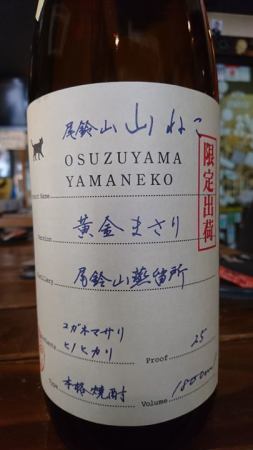 尾鈴山 山ねこ
OSUZUYAMA
YAMANEKO
限定出荷
黄金まさり
尾鈴山蒸留所
コガネマサリ
ヒノヒカリ
Proof
25
Type
本格焼酎
Volume
1800ml